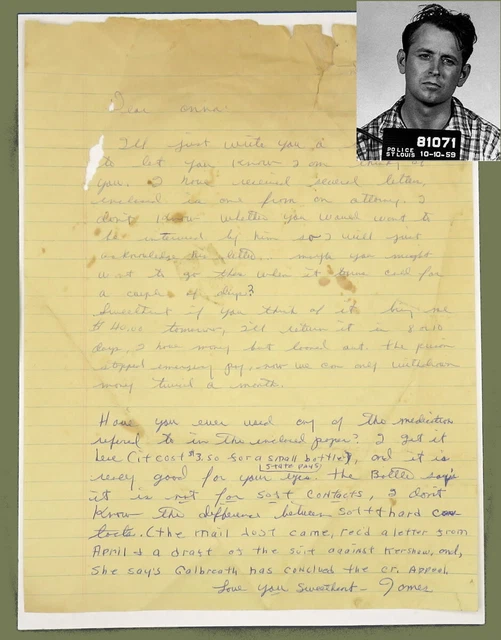 81071
POLICE
ST LOUIS 10-10-59
Dear Anna:
I'll just write you a
to let you know I am thinking of
you. I have received several letters,
enclosed is one from an attorney. I
don't know whether you would want to
be interviewed by him so I will just
acknowledge his letter... maybe you might
want to go there when it turns cold for
a couple of days?
Sweetheart if you think of it bring me
$40.00 tomorrow, I'll return it in 8 or 10
days, I have money but loaned out. The prison
stopped emergency pay, now we can only withdraw
money twice a month.
Have you ever used any of the medication
refered to in the enclosed paper? I get it
here (it cost $3.50 for a small bottle), and it is
state pays
really good for your eyes. the Bottle says
it is not for soft contacts, I don't
Know The difference between soft & hard con
tacts. (the mail Just came, rec'd a letter from
April & a draft of the suit against Kershaw, and,
She says Galbreath has concluded the cr. Appeal.
Love You Sweetheart - James